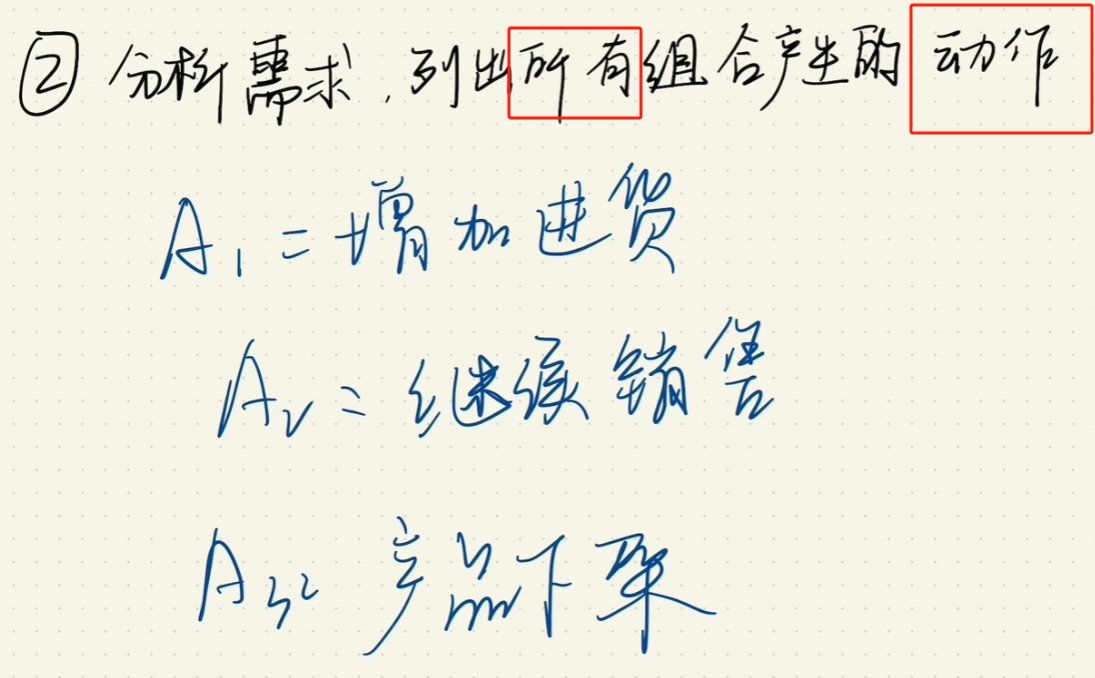 ② 分析需求,列出所有组合产生的动作
A₁ = 增加进货
A₂ = 继续销售
A₃ = 产品下架